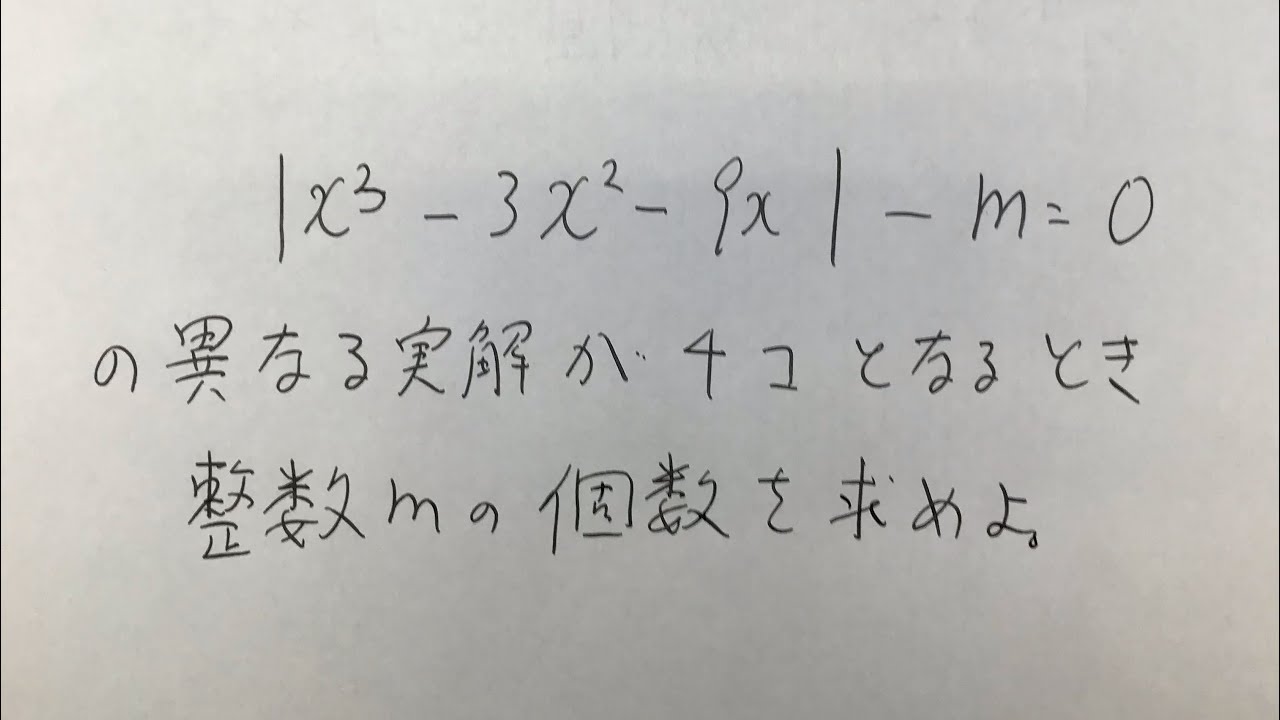 |x³ - 3x² - 9x| - m = 0
の異なる実解が4コとなるとき
整数mの個数を求めよ。